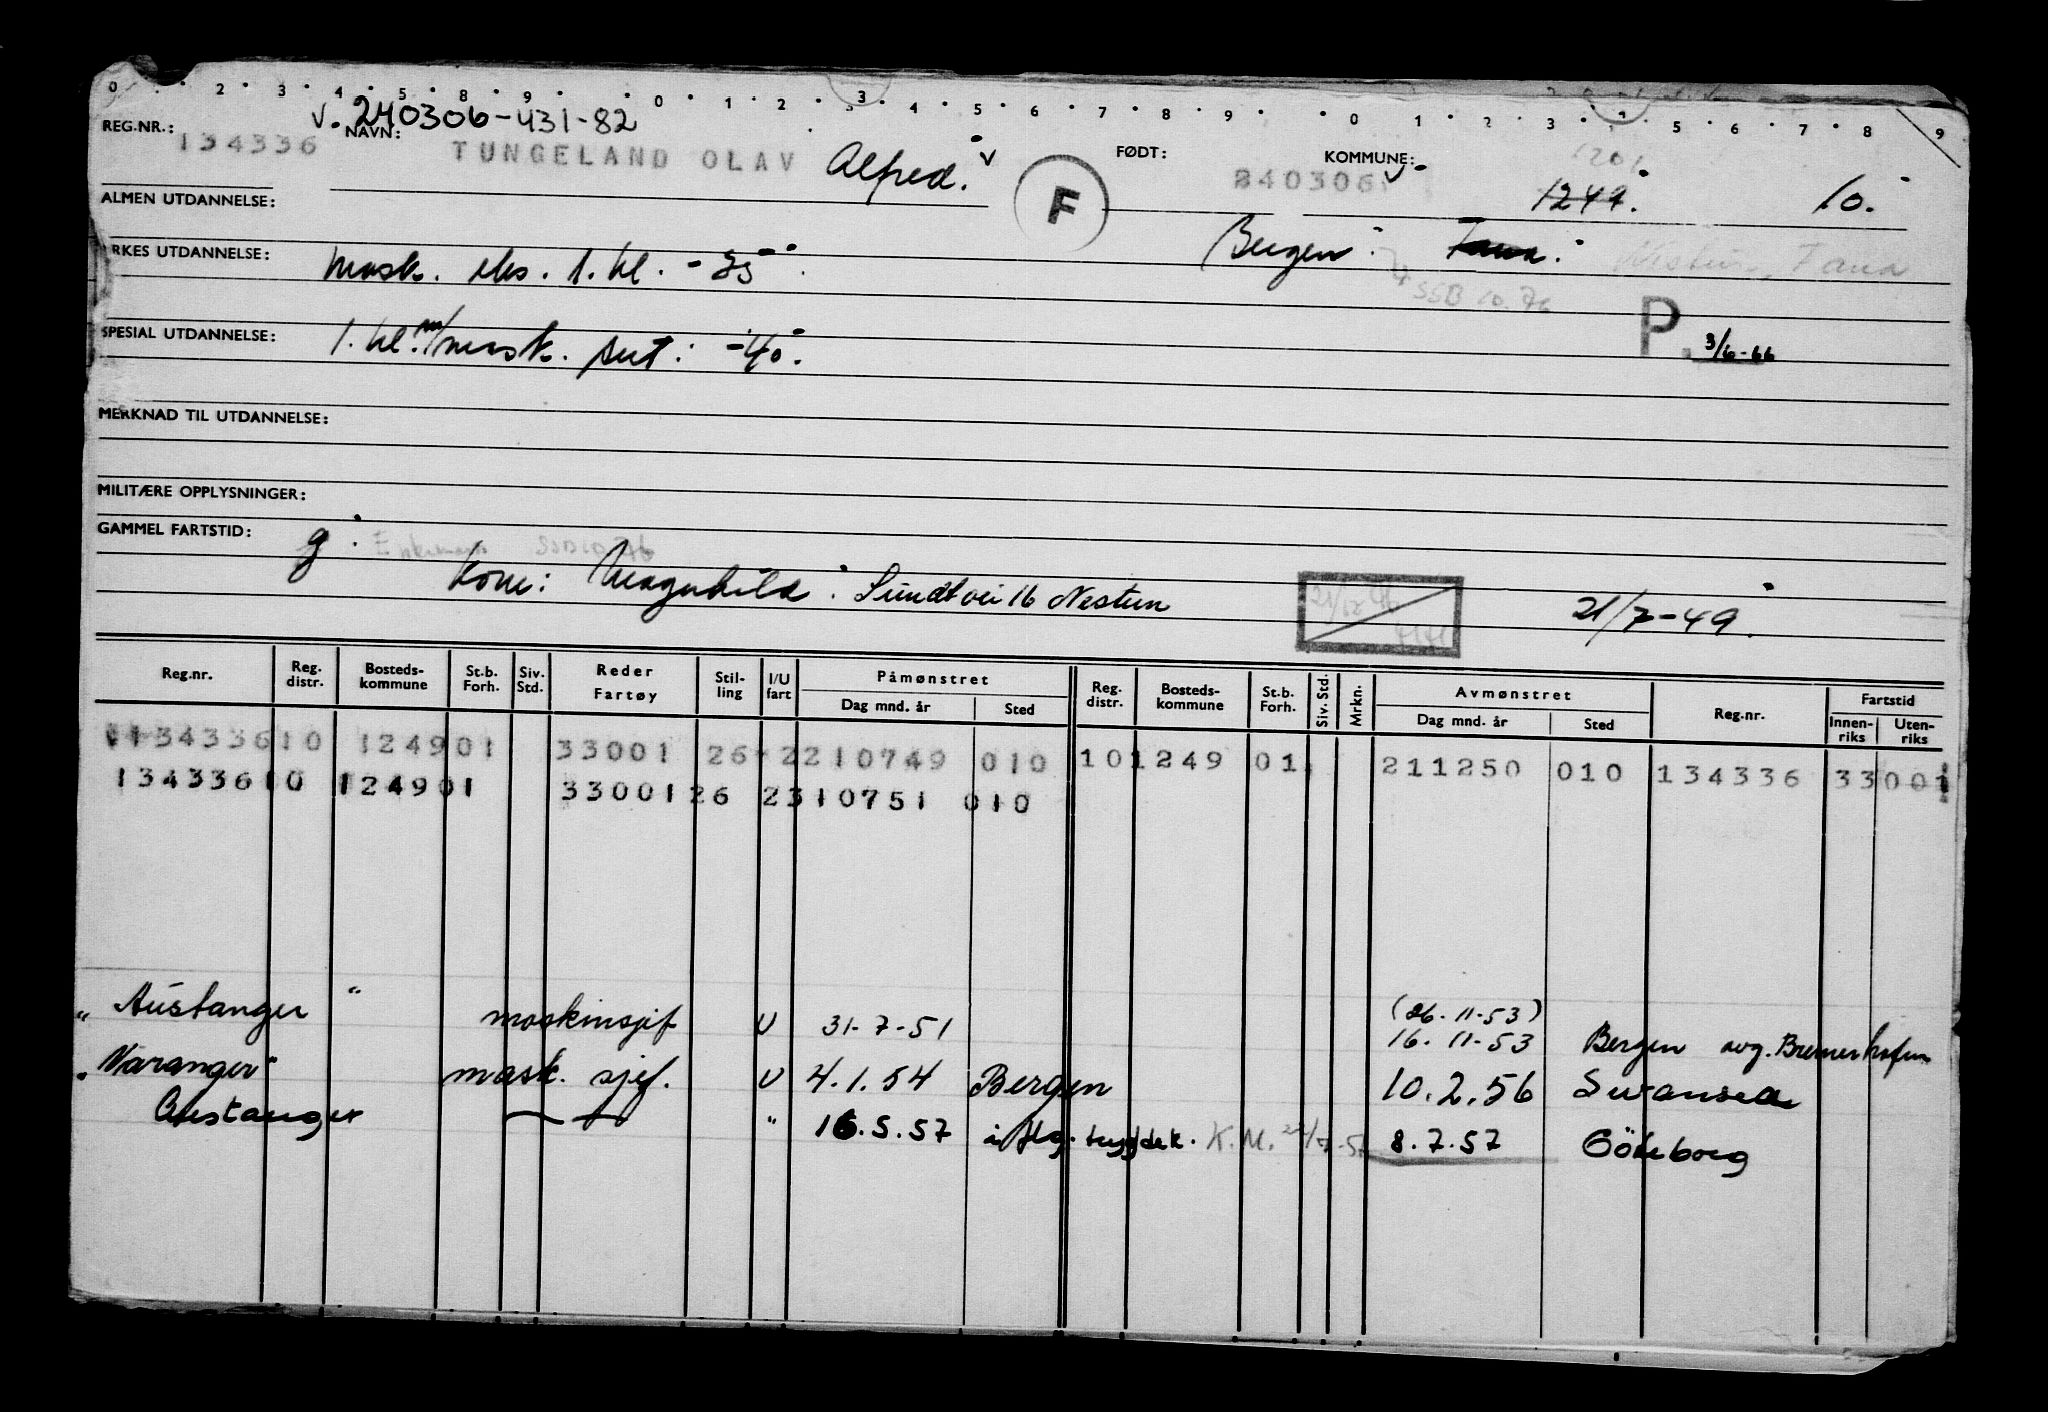 0 2 3 4 5 8 9 0 1 2 3 4 5 6 7 8 9 0 1 2 3 5 6 7 8 9
v. 240306-431-82
REG.NR.: 134336 NAVN: TUNGELAND OLAV Alfred. v F FØDT: 240306 KOMMUNE: v 1201 1249. 10.
ALMEN UTDANNELSE:
RKES UTDANNELSE: mask. eks. 1. kl. - 35 Bergen. Fana. Nestun, Fana
SSB 10.76
SPESIAL UTDANNELSE: 1. kl. m/mask. sert: -40. P. 3/6-66
MERKNAD TIL UTDANNELSE:
MILITÆRE OPPLYSNINGER:
GAMMEL FARTSTID: g. SSB 10 76
Kone: Magnhild. Sundtvei 16 Nestun 21/7-49.
Reg.nr. Reg. distr. Bosteds-kommune St.b. Forh. Siv. Std. Reder Fartøy Stil-ling I/U fart Påmønstret Dag mnd. år Sted Reg. distr. Bosteds-kommune St.b. Forh. Siv. Std. Mrkn. Avmønstret Dag mnd. år Sted Reg.nr. Fartstid Innen-riks Uten-riks
134336 10 1249 01 33001 26 2 210749 010 10 1249 01 211250 010 134336 33 001
134336 10 1249 01 33001 26 2 310751 010
"Austanger" maskinsjef U 31-7-51 (26.11-53) 16.11-53 Bergen avg. Bremerhafen
"Varanger" mask. sjef. U 4.1.54 Bergen 10.2.56 Swansea
Austanger " 16.5.57 K.M. 8.7.57 Göteborg